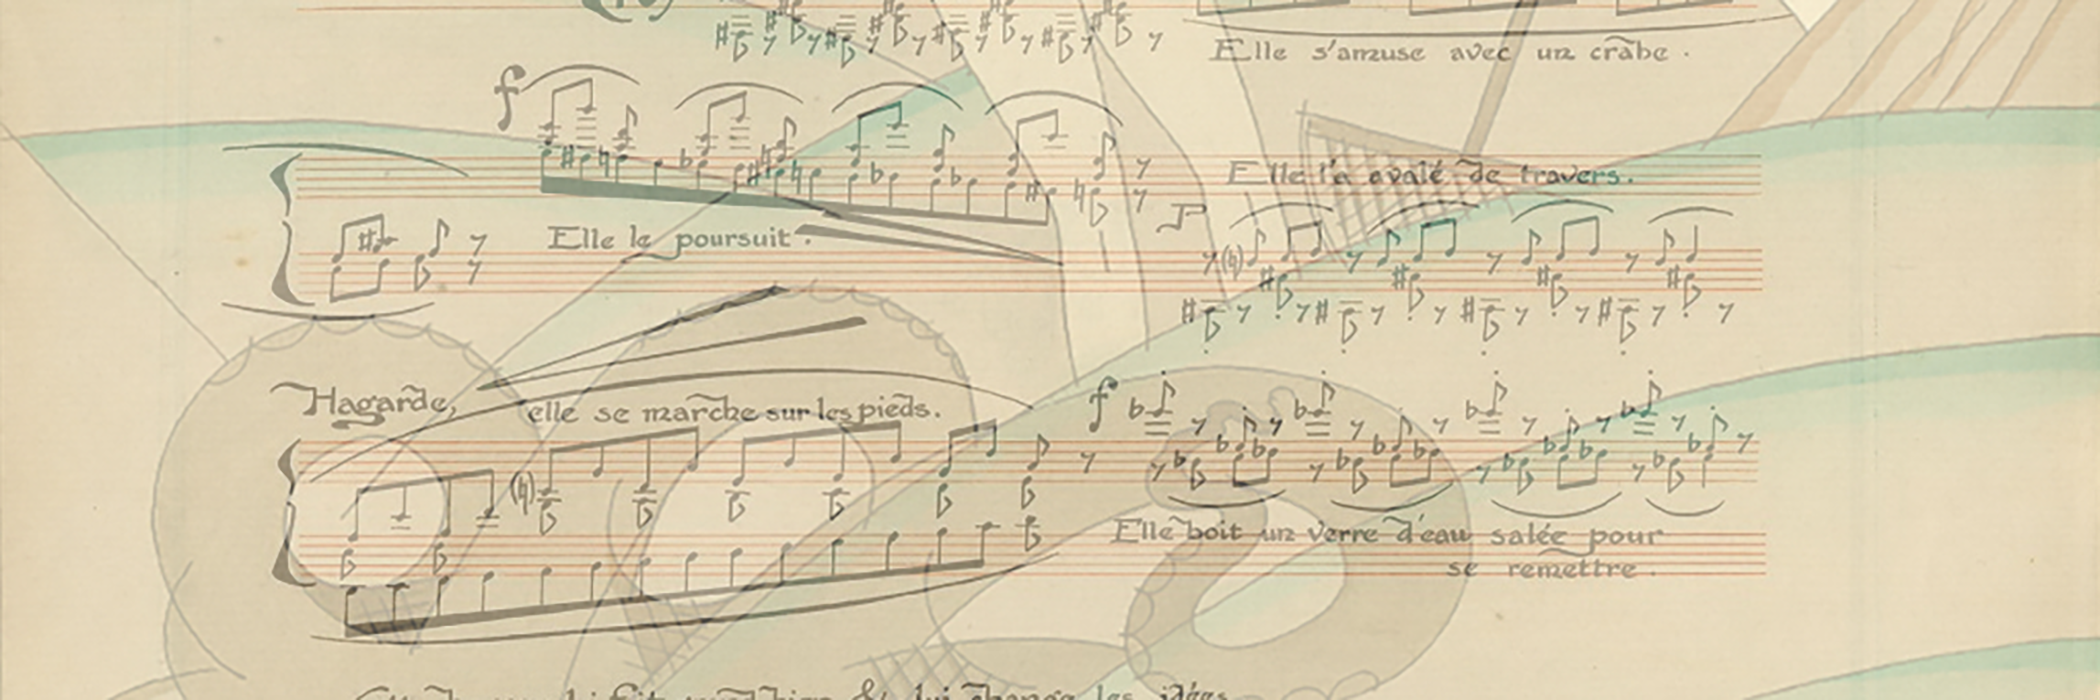 Elle s'amuse avec un crabe.
Elle l'a avalé de travers.
Elle le poursuit.
Hagarde, elle se marche sur les pieds.
Elle boit un verre d'eau salée pour
se remettre.
& lui change les idées